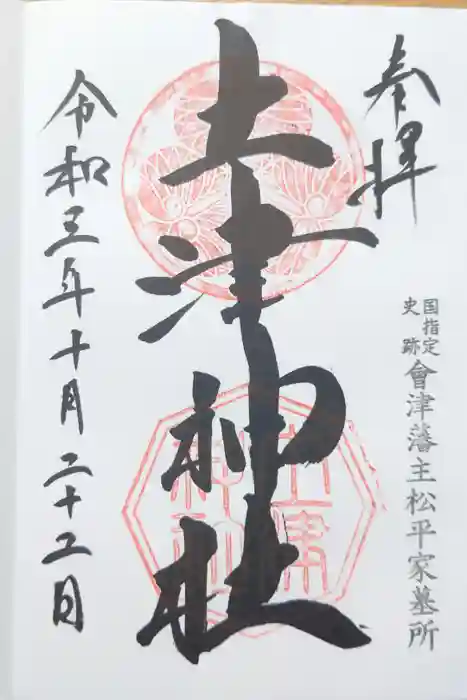 奉拝
国指定
史跡
會津藩主松平家墓所
土津神社
土津
神社
令和三年十月二十五日